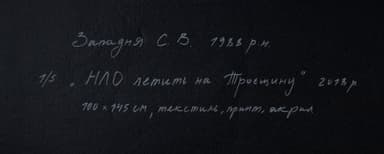 Западня С. В. 1988 р.н.
1/5 „НЛО летить на Троєщину" 2018 р
100 × 145 см, текстиль, принт, акрил